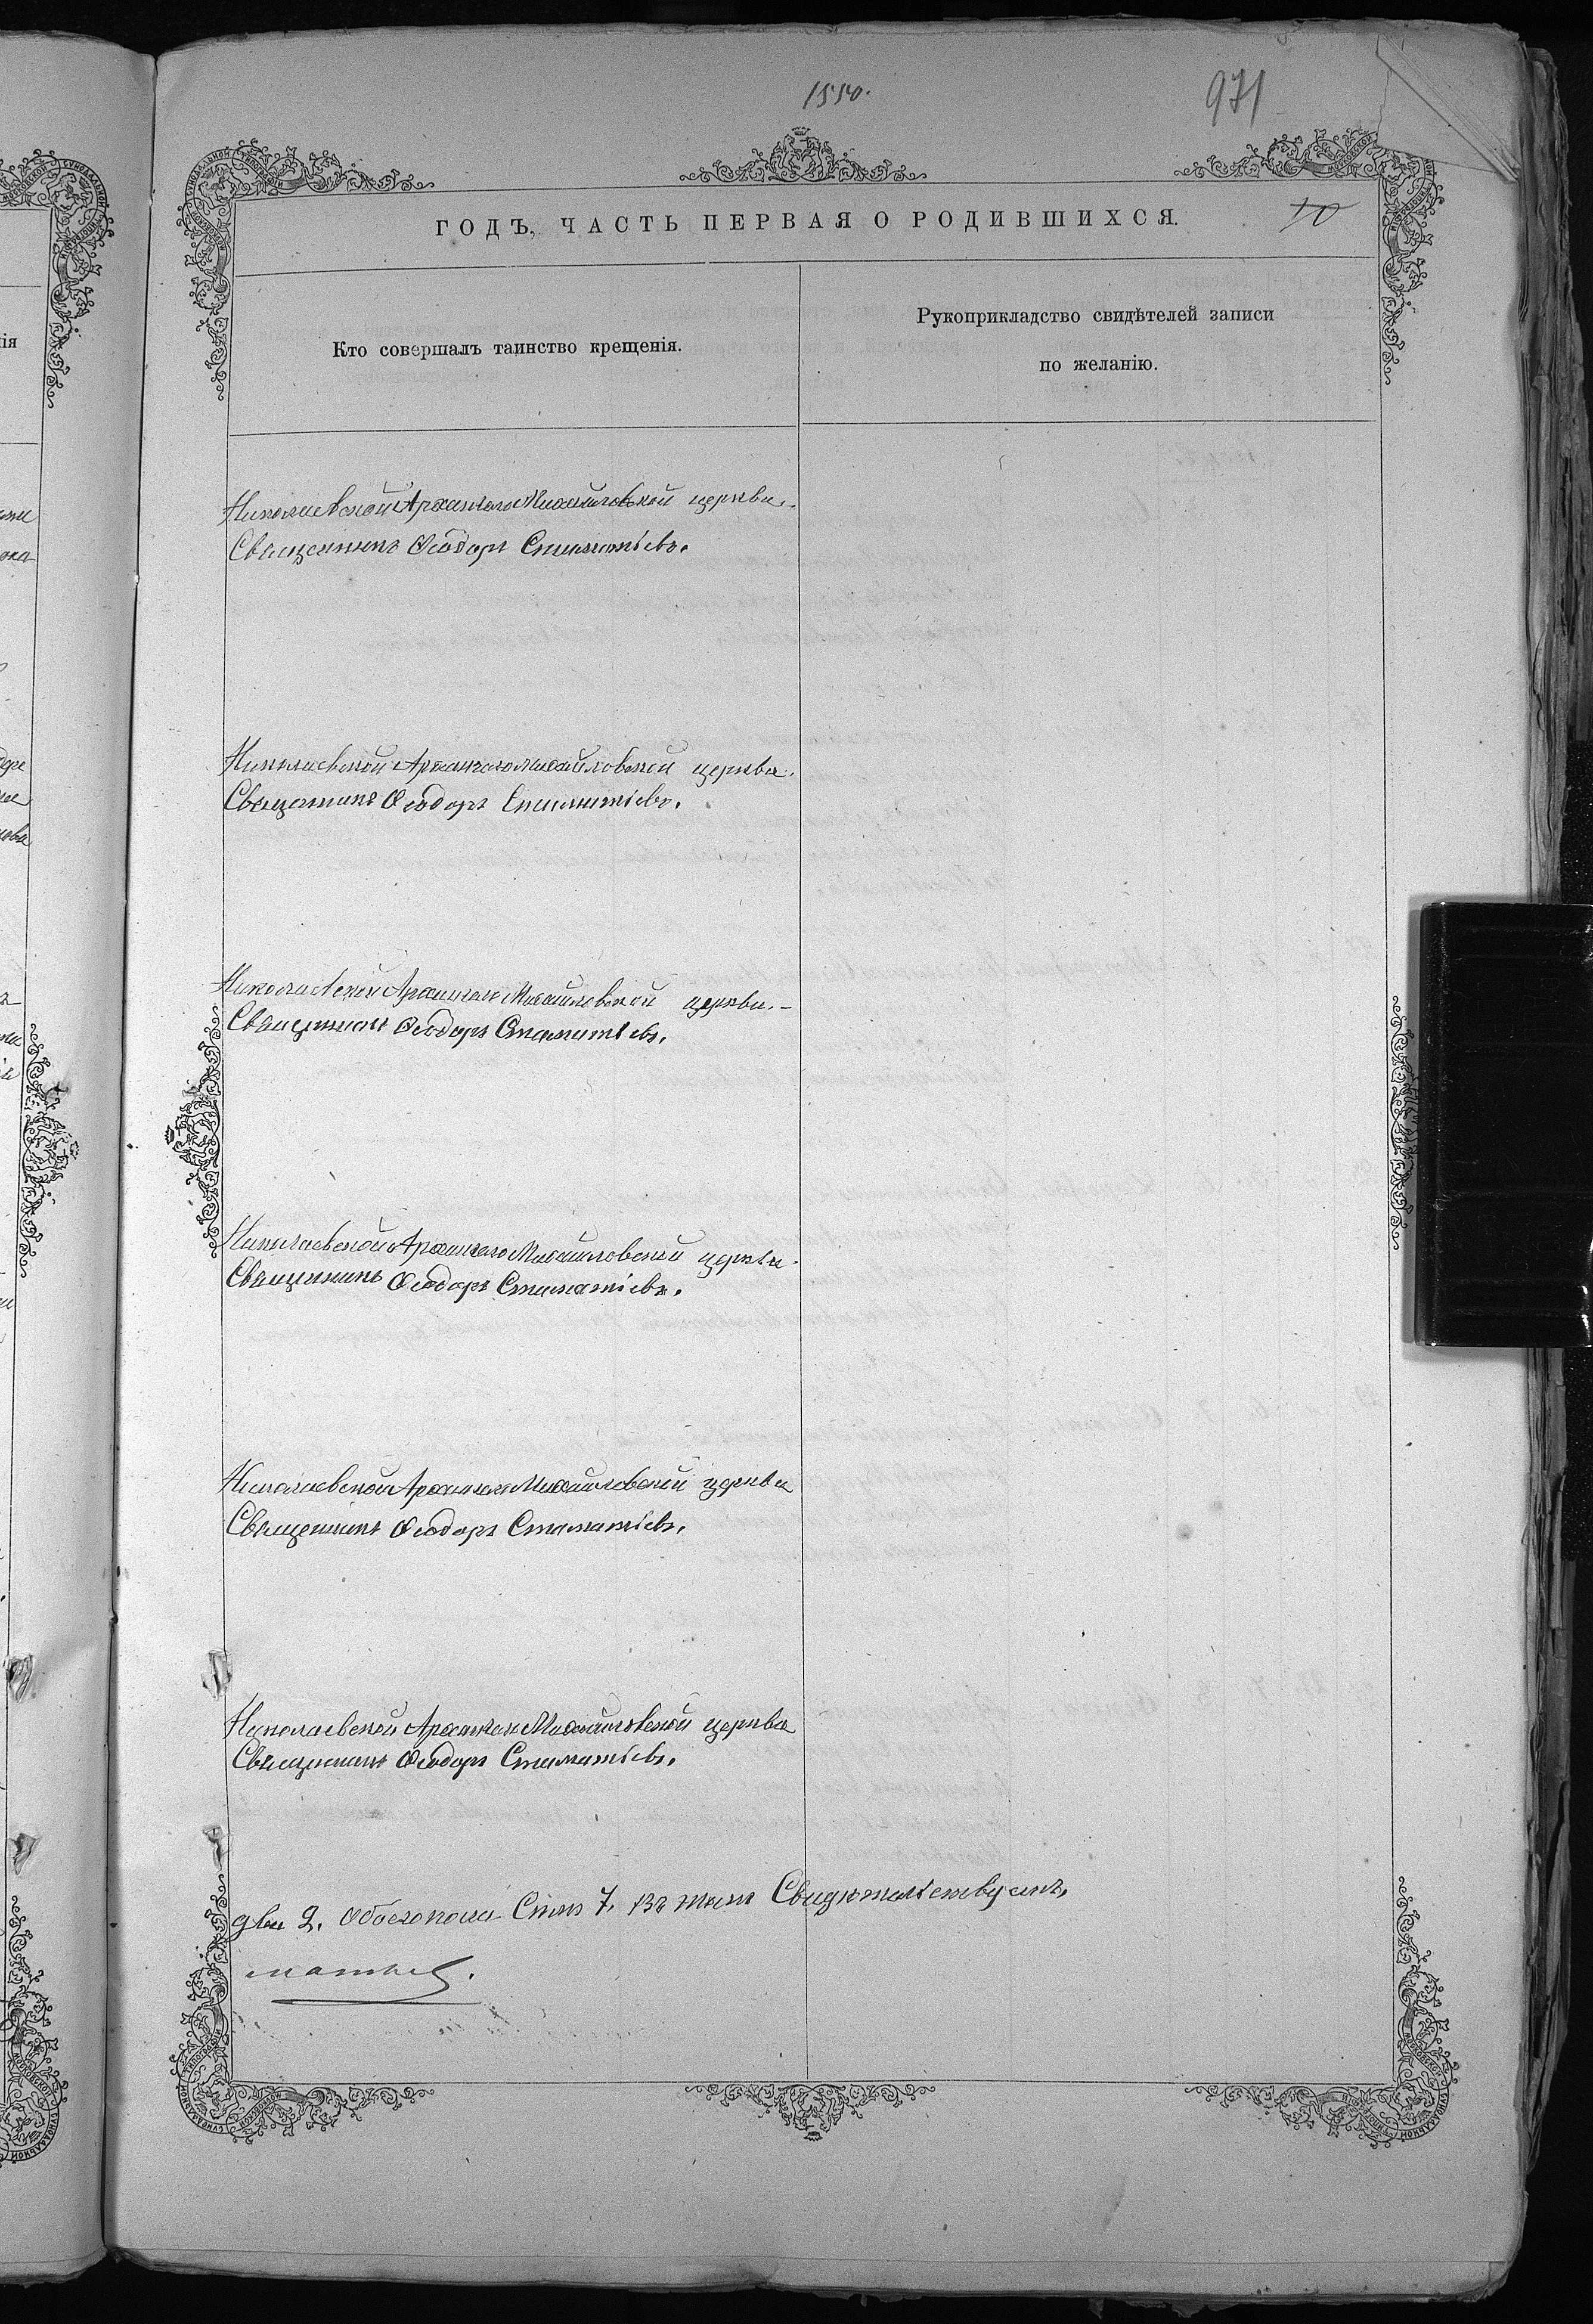 1550.
971
ГОДЪ, ЧАСТЬ ПЕРВАЯ О РОДИВШИХСЯ.
10
Кто совершалъ таинство крещенія.
Рукоприкладство свидѣтелей записи
по желанію.
Николаевской Архангело Михайловской церкви.
Священникъ Ѳеодоръ Стаматіевъ.
Николаевской Архангело Михайловской церкви.
Священникъ Ѳеодоръ Стаматіевъ.
Николаевской Архангело Михайловской церкви. –
Священникъ Ѳеодоръ Стаматіевъ.
Николаевской Архангело Михайловской церкви.
Священникъ Ѳеодоръ Стаматіевъ.
Николаевской Архангело Михайловской церкви
Священникъ Ѳеодоръ Стаматіевъ.
Николаевской Архангело Михайловской церкви
Священникъ Ѳеодоръ Стаматіевъ.
два 2. Обоего пола Семь 7. въ томъ Свидѣтельствуемъ,